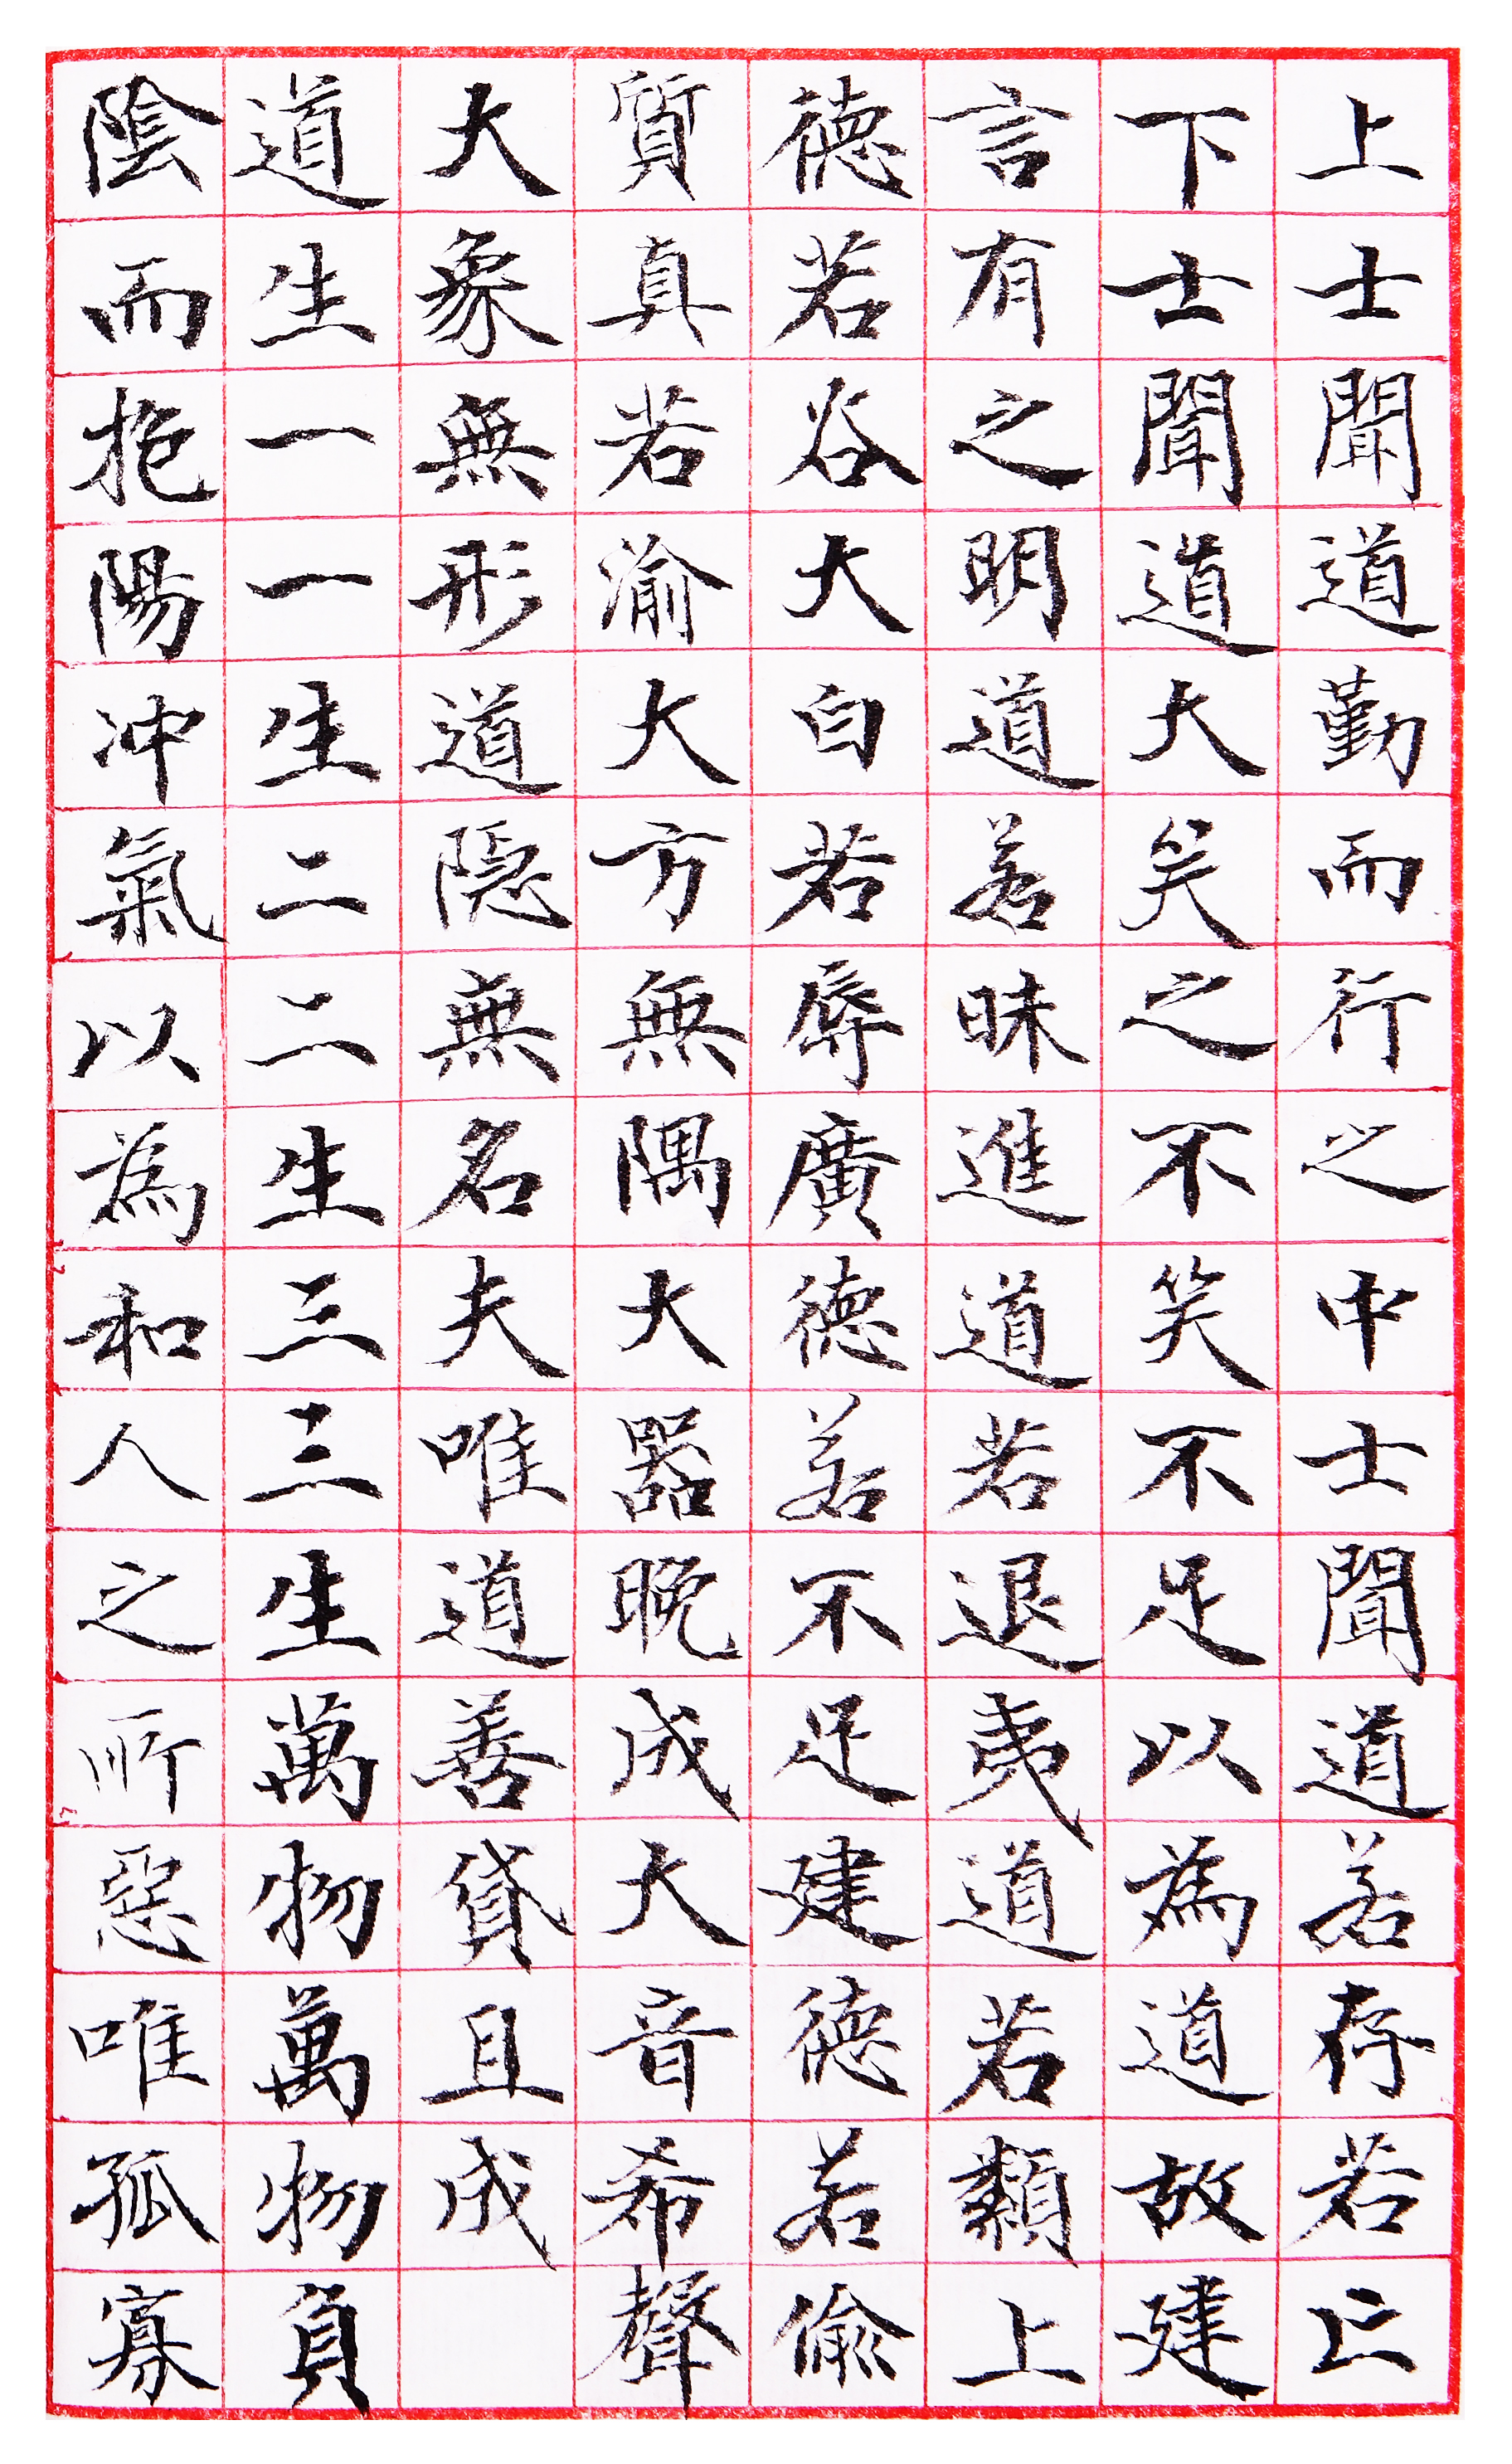 上士聞道勤而行之中士聞道若存若亡
下士聞道大笑之不笑不足以為道故建
言有之明道若昧進道若退夷道若纇上
德若谷大白若辱廣德若不足建德若偷
質真若渝大方無隅大器晚成大音希聲
大象無形道隱無名夫唯道善貸且成
道生一一生二二生三三生萬物萬物負
陰而抱陽沖氣以為和人之所惡唯孤寡